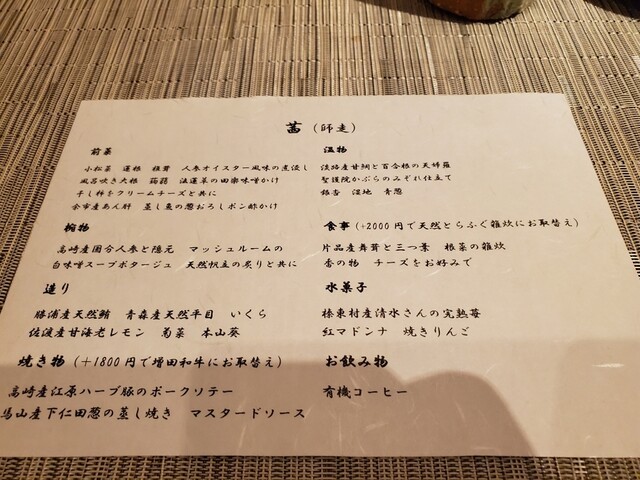 茜（師走）
前菜
小松菜　蓮根　椎茸　人参オイスター風味の煮浸し
風呂吹き大根　蒟蒻　法蓮草の田楽味噌かけ
干し柿をクリームチーズと共に
余市産あん肝　蒸し魚の葱おろしポン酢かけ
椀物
高崎産国分人参と隠元　マッシュルームの
白味噌スープポタージュ　天然帆立の炙りと共に
造り
勝浦産天然鮪　青森産天然平目　いくら
佐渡産甘海老レモン　菊菜　本山葵
焼き物（＋1800円で増田和牛にお取替え）
高崎産江原ハーブ豚のポークソテー
馬山産下仁田葱の蒸し焼き　マスタードソース
温物
淡路産甘鯛と百合根の天婦羅
聖護院かぶらのみぞれ仕立て
銀杏　湿地　青葱
食事（+2000円で天然とらふぐ雑炊にお取替え）
片品産舞茸と三つ葉　根菜の雑炊
香の物　チーズをお好みで
水菓子
榛東村産清水さんの完熟苺
紅マドンナ　焼きりんご
お飲み物
有機コーヒー